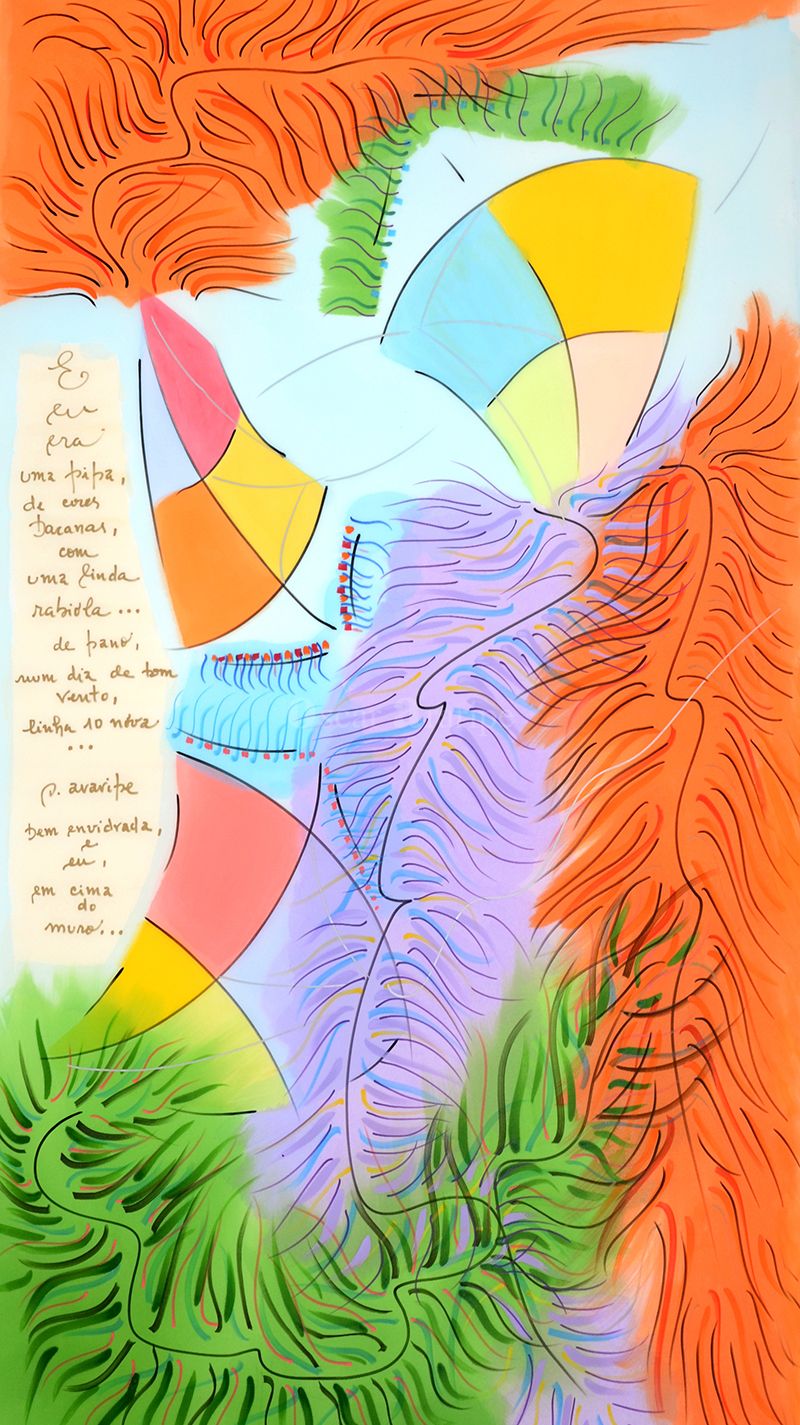 E
eu
era
uma pipa,
de cores
bacanas,
com
uma linda
rabiola ...
de pano,
num dia de bom
vento,
linha 10 nova
...
p. araripe
bem envidrada,
e
eu,
em cima
do
muro...